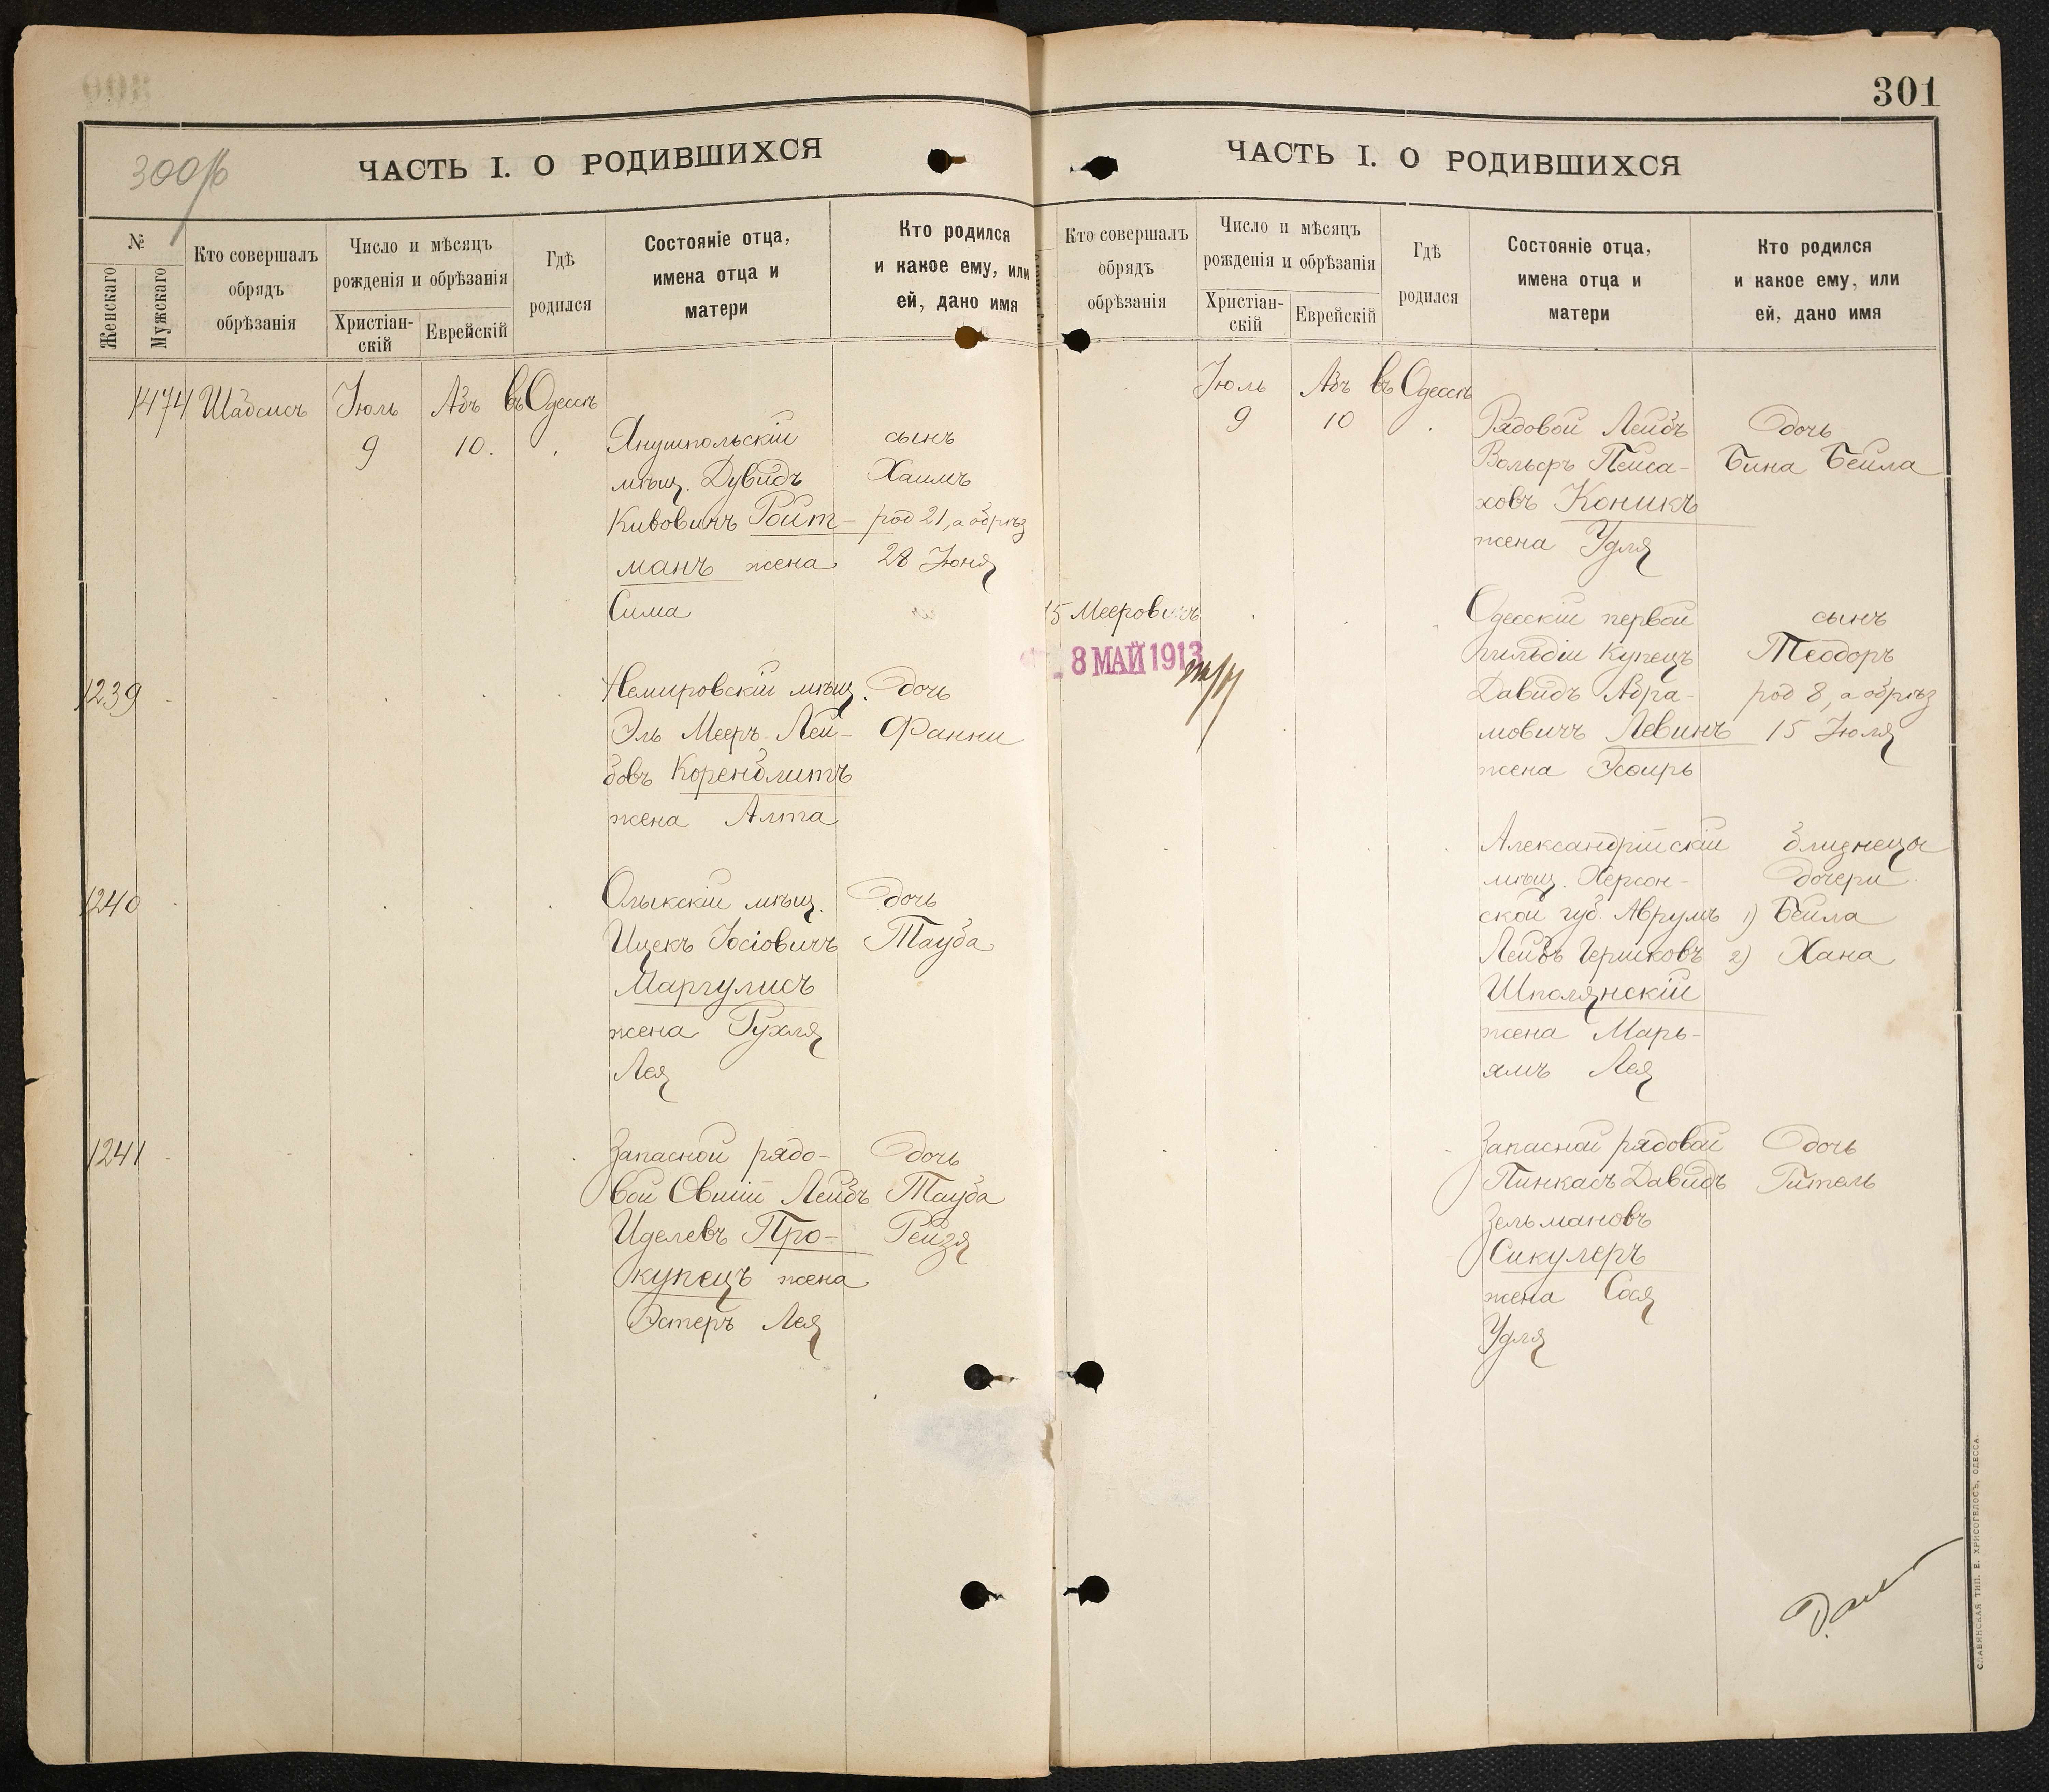 301
300 об
ЧАСТЬ I. О РОДИВШИХСЯ
№
Женскаго
Мужскаго
Кто совершалъ
обрядъ
обрѣзанія
Число и мѣсяцъ
рожденія и обрѣзанія
Христіан-
скій
Еврейскій
Гдѣ
родился
Состояніе отца,
имена отца и
матери
Кто родился
и какое ему, или
ей, дано имя
1474 Шабсисъ Іюль Абъ въ Одессѣ
9 10.
Янушпольскій сынъ
мѣщ. Дувидъ Хаимъ
Кивовичъ Ройт- род 21, а обрѣз
манъ жена 28 Іюня
Сима
1239 Немировскій мѣщ. дочь
Эль Мееръ Лей- Фанни
бовъ Коренблитъ
жена Алта
1240 Олыкскій мѣщ. дочь
Ицекъ Іосіовичъ Тауба
Маргулисъ
жена Рухля
Лея
1241 Запасной рядо- дочь
вой Овшій Лейбъ Тауба
Иделевъ Про- Рейзя
купецъ жена
Эстеръ Лея
ЧАСТЬ I. О РОДИВШИХСЯ
Кто совершалъ
обрядъ
обрѣзанія
Число и мѣсяцъ
рожденія и обрѣзанія
Христіан-
скій
Еврейскій
Гдѣ
родился
Состояніе отца,
имена отца и
матери
Кто родился
и какое ему, или
ей, дано имя
Іюль Абъ въ Одессѣ
9 10
Рядовой Лейбъ дочь
Вольфъ Пейса- Бина Бейла
ховъ Коникъ
жена Удля
15 Мееровичъ Одесскій первой сынъ
гильдіи купецъ Теодоръ
8 МАЙ 1913
Давидъ Абра- род 8, а обрѣз
мовичъ Левинъ 15 Іюля
жена Эсѳирь
Александрійскій близнецы
мѣщ. Херсон- дочери
ской губ. Аврумъ 1) Бейла
Лейбъ Гершковъ 2) Хана
Шполянскій
жена Марь-
ямъ Лея
Запасной рядовой дочь
Пинкасъ Давидъ Гитель
Зельмановъ
Сикулеръ
жена Сося
Удля
СЛАВЯНСКАЯ ТИП. Е. ХРИСОГЕЛОСЪ, ОДЕССА.